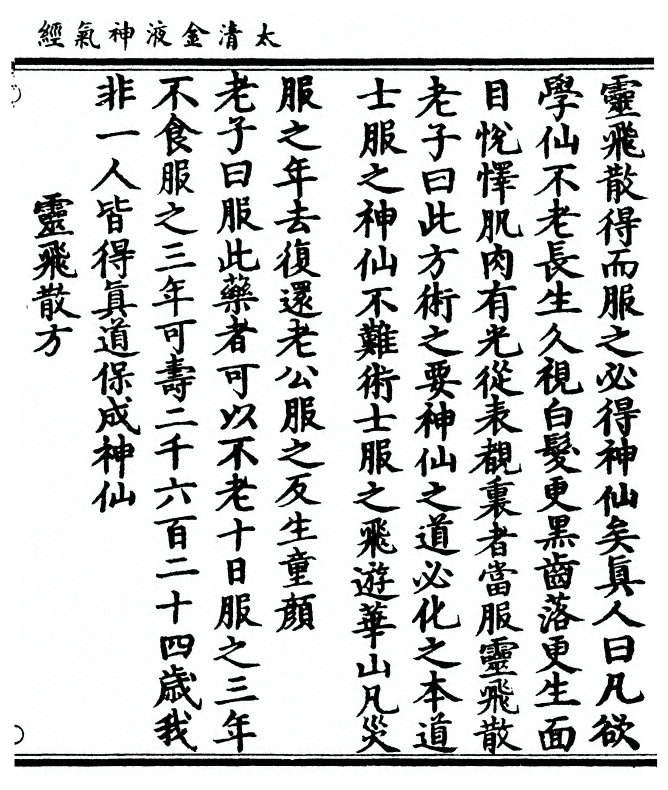 太清金液神氣經
靈飛散得而服之必得神仙矣真人曰凡欲
學仙不老長生久視白髮更黑齒落更生面
目悅懌肌肉有光從表覩裏者當服靈飛散
老子曰此方術之要神仙之道必化之本道
士服之神仙不難術士服之飛遊華山凡災
服之年去復還老公服之反生童顏
老子曰服此藥者可以不老十日服之三年
不食服之三年可壽二千六百二十四歲我
非一人皆得真道保成神仙
靈飛散方